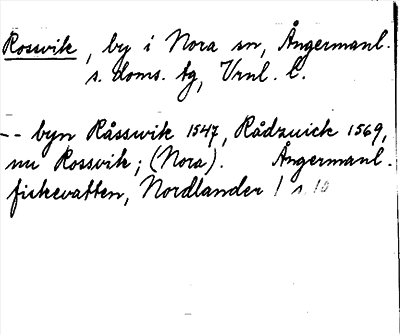 Rossvik, by i Nora sn, Ångermanl.
s. doms. tg, Vrnl. l.
-- byn Råsswik 1547, Rådzuick 1569,
nu Rossvik; (Nora). Ångermanl.
fiskevatten, Nordlander 1 s. 10